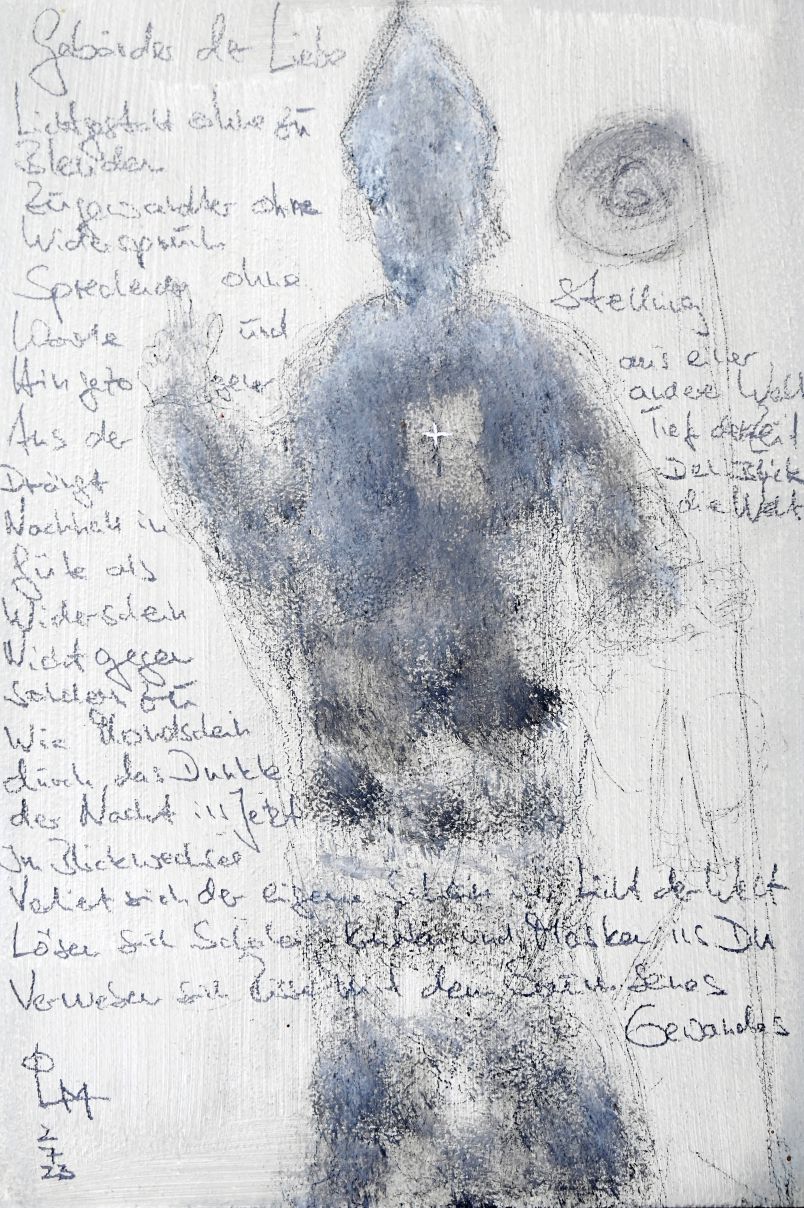 Gebärden der Liebe
Lichtgestalt ohne zu
Blenden
Zugewandter ohne
Widerspruch
Sprechender ohne
Worte und
Hingezogener
Aus der
Drängt
Nachhall in
Güte als
Widerschein
Nicht gegen
sondern zu
Wie Mondschein
durch das Dunkle
der Nacht ins Jetzt
Im Blickwechsel
Verliert sich der eigene Schein im Licht der Welt
Lösen sich Schalen und Masken ins DU
Verweben sich mit dem Saum seines
Gewandes
Stellung
aus einer
andere Welt
Tief der Zeit
Den Blick
die Welt
LM
2
7
23